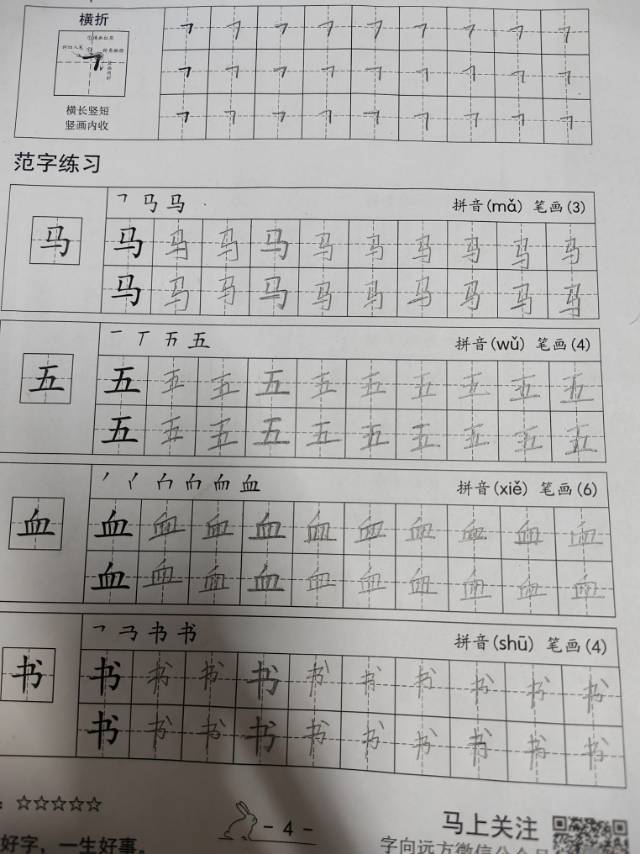 横折
横长竖短
竖画内收
范字练习
㇕ 马 马 拼音(mǎ) 笔画(3)
马 马 马 马 马 马 马 马 马 马 马
马 马 马 马 马 马 马 马 马 马
一 丅 五 五 拼音(wǔ) 笔画(4)
五 五 五 五 五 五 五 五 五 五 五
五 五 五 五 五 五 五 五 五 五
血 拼音(xiě) 笔画(6)
血 血 血 血 血 血 血 血 血 血 血
血 血 血 血 血 血 血 血 血 血
书 书 拼音(shū) 笔画(4)
书 书 书 书 书 书 书 书 书 书 书
书 书 书 书 书 书 书 书 书 书
: ☆☆☆☆☆
好字，一生好事。
- 4 -
马上关注
字向远方微信公众号